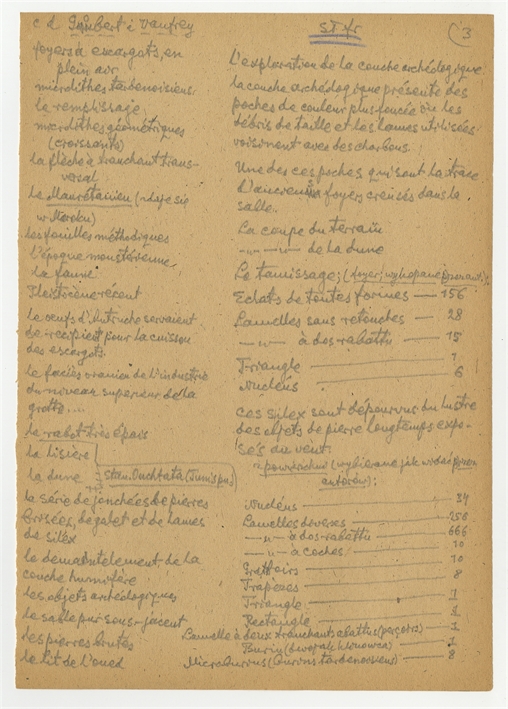 c d Gobert i Vaufrey
foyers à escargots, en
plein air
microlithes tardenoisiens
le remplissage
microlithes géométriques
(croissants)
la flèche à tranchant trans-
versal
Le Maurétanien (udaje się
w Maroku)
les fouilles méthodiques
l'époque moustérienne,
la faune
Pleistocène récent
le oeufs d'autruche servaient
de récipient pour la cuisson
des escargots.
le faciès oranien de l'industrie
du niveau superieur de la
grotte....
le rabot très épais
la lisière
la dune stan. Ouchtata (Tunis pus)
la série de jonchées de pierres
brisées, de galet et de lames
de silex
le demantelement de la
couche humifère
les objets archéologiques
le sable pur sous-jacent
les pierres brutes
le lit de l'oued
ST fr (3
L'exploration de la couche archéologique
la couche archéologique présente des
poches de couleur plus foncée où les
débris de taille et les lames utilisées
voisinent avec des charbons.
Une des ces poches qui sont la trace
d'anciens foyers creusés dans la
salle..
La coupe du terrain
-„- -„- de la dune
Le tamissage;
Eclats de toutes formes — 156
Lamelles sans retouches — 28
-„- à dos rabattu — 15
Triangle — 1
Nucléus — 6
Ces silex sont dépourvus du lustre
des objets de pierre longtemps expo-
sés au vent.
z powierzchni (wybierane jak widać przez
autorów):
Nucléus — 34
Lamelles diverses — 256
-„- à dos rabattu — 666
-„- à coches — 10
Grattoirs — 10
Trapèzes — 8
Triangle — 1
Rectangle — 1
Lamelle à deux tranchants abattus (perçoirs) — 1
Burin — 1
Microburins (burins tardenoisiens) — 8